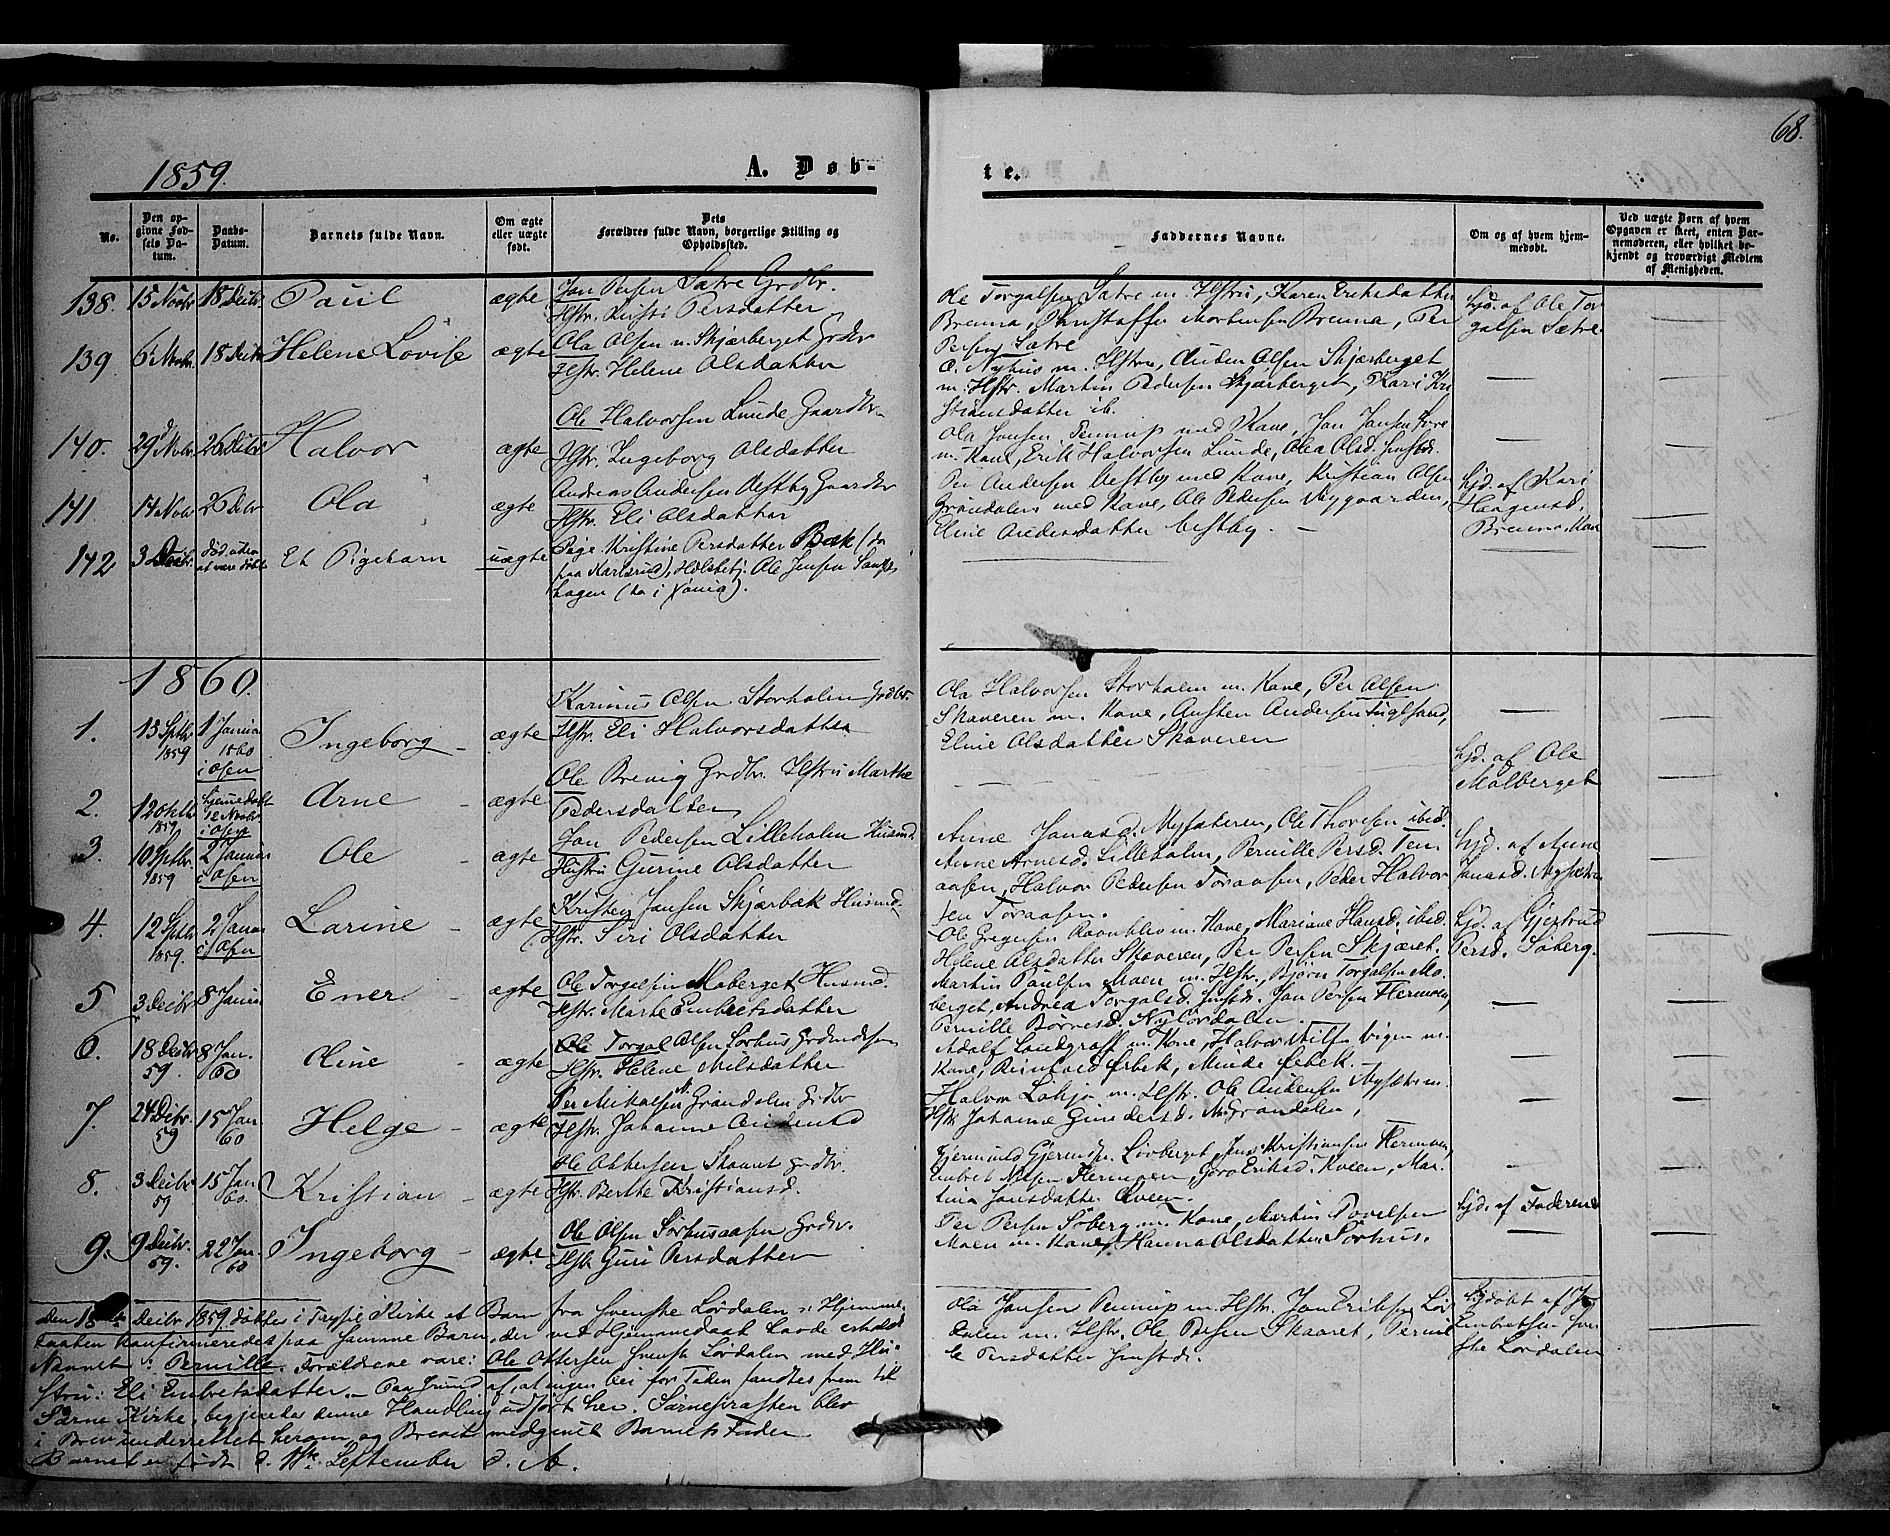 68.
1859.
A. Døb-
te.
No.
Den op-
givne Fød-
sels Da-
tum.
Daabs-
Datum.
Barnets fulde Navn.
Om ægte
eller uægte
født.
Dets
Forældres fulde Navn, borgerlige Stilling og
Opholdssted.
Faddernes Navne.
Om og af hvem hjem-
medøbt.
Ved uægte Børn af hvem
Opgaven er skeet, enten Bar-
nemoderen, eller hvilket be-
kjendt og troværdigt Medlem
af Menigheden.
138. 15 Novbr 18 Decbr. Paul ægte Jan Persen Sætre Grdbr.
Hstr. Kersti Persdatter
Ole Torgalsen Sætre m. Hstru, Karen Eriksdatter
Brenna, Christoffer Mortensen Brenna, Per
Persen Sætre
hjd. af Ole Tor
galsen Sætre
139 6 Novbr. 18 Decbr Helene Lovise ægte Ola Olsen n. Skjærberget Grdbr
Hstr. Helene Olsdatter
O. Nyhus m. Hstru, Auden Olsen Skjærberget
m. Hstr. Martin Pedersen Skjærberget, Kari Kri
stiansdatter ib.
140. 29 Novbr. 26 Decbr Halvor ægte Ole Halvorsen Lunde Gaardbr.
Hstr. Ingeborg Olsdatter
Ola Jonsen Pennup med Kone, Jan Jansen
m. Kone, Erik Halvorsen Lunde, Olea Olsd.
141 14 Novbr 26 Debr Ola ægte Andreas Andersen Vestby Gaardbr
Hstr. Eli Olsdatter
Per Andersen Vestby med Kone, Kristian Olsen
Grøndalen med Kone, Ole Pedersen Nygaarden,
Eline Andersdatter Vestby.
hjd. af Kari
Haagensd.
Brenna
142 3 Decbr. død uden
at være døbt Et Pigebarn uægte Pige Kristine Persdatter Bæk (da
paa Karlsrud), Ole Jensen
hagen (da i Xania).
1860.
1. 13 Septbr
1859 1 Januar
1860
i Osen Ingeborg ægte Karinus Olsen Storholm Grdbr.
Hstr. Eli Halvorsdatter
Ola Halvorsen Storholm m. Kone, Per Olsen
Skaveren m. Kone, Austen Andersen Fuglsand,
Eline Olsdatter Skaveren
2. 12 Oktbr
1859 hjemmedøbt
12 Novbr.
i Osen Arne ægte Ole Brevig Grdbr. Hstru Marthe
Pedersdatter
hjd. af Ole
Malberget
3. 10 Septbr.
1859 2 Januar
i Osen Ole ægte Jan Pedersen Lilleholm Husmd.
Hustru Gurine Olsdatter
Anne Jonasd. Nysæteren, Ole Thoresen ibid.
Anne Arnesd. Lilleholm, Pernille Persd. Tem
aasen, Halvor Pedersen Toraasen, Peder Halvor
sen Toraasen.
hjd. af Anne
Jonasd. Nysætren
4. 12 Septbr
1859. 2 Januar
i Osen Larine ægte Kristen Jansen Skjærbæk Husmd.
Hstr. Siri Olsdatter
Ole Gregersen Kone, Mariane Hansd. ibid.
Helene Olsdatter Skaveren, Per Persen Skjæret.
hjd. af Gjertrud
Persd. Søberg.
5 3 Decbr 8 Januar Ener ægte Ole Torgalsen Moberget Husmd.
Hstr. Marte Embretsdatter
Martin Paulsen Moen m. Hstr., Bjørn Torgalsen Mo
berget, Andrea Torgalsd. Jan Persen Hermoen,
Pernille Børresd. Nylørdalen.
6. 18 Decbr
59. 8 Jan.
60 Oline ægte Torgal Olsen Sørhus
Hstr. Helene Nilsdatter
Adolf Landgraff m. Kone, Halvor m.
Kone, Reinhold Ørbek, Minde Ørbek.
7. 24 Decbr
59 15 Jan
60 Helge ægte Per Mikalsen N. Grøndalen Grdbr
Hstr. Johanne
Halvor m. Hstr. Ole Andersen Nysæt m.
Hstr Johanne Gundersd. N. Grøndalen,
8. 3 Decbr
59 15 Jan
60. Kristian ægte Ole Ottersen Skaaret Grdbr.
Hstr. Berthe Kristiansd.
Gjermund Løvberget, Jens Kristiansen Hermoen,
Embret Nilsen Hermoen, Goro Eriksd. Kveen, Mar
tina Jonsdatter Kveen.
hjd. af Faderen
9. 9 Decbr.
59. 22 Jan.
60 Ingeborg ægte. Ole Olsen Sørhusaasen Grdbr.
Hstr Guri Persdatter
Per Persen Søberg m. Kone, Martin Povelsen
Moen m. Kone, Hanna Olsdatter Sørhus.
Den Decbr 1859 døbtes i Trysil Kirke et Barn fra Svenske Lørdalen Hjemme-
daaben konfirmeredes paa samme Barn, der ved Hjemmedaab havde erholdt
Navnet: Pernille. Forældrene vare: Ole Ottersen Svensk Lørdalen med Hu-
stru: Eli Embretsdatter. Paa Grund af, at ingen Vei for Tiden fandtes frem til
Särne Kirke, begjæredes denne Handling udført her. Särnepræsten blev
i Brev underrettet herom, og Brevet medgivet Barnets Fader
Barnet er født d. September d. A.
Ola Jansen Pennup m. Hstr. Jan Eriksen Lør
dalen m. Hstr. Ole Persen Skaaret, Pernil
le Persdatter
hjdøbt af
Embretsen
Lørdalen